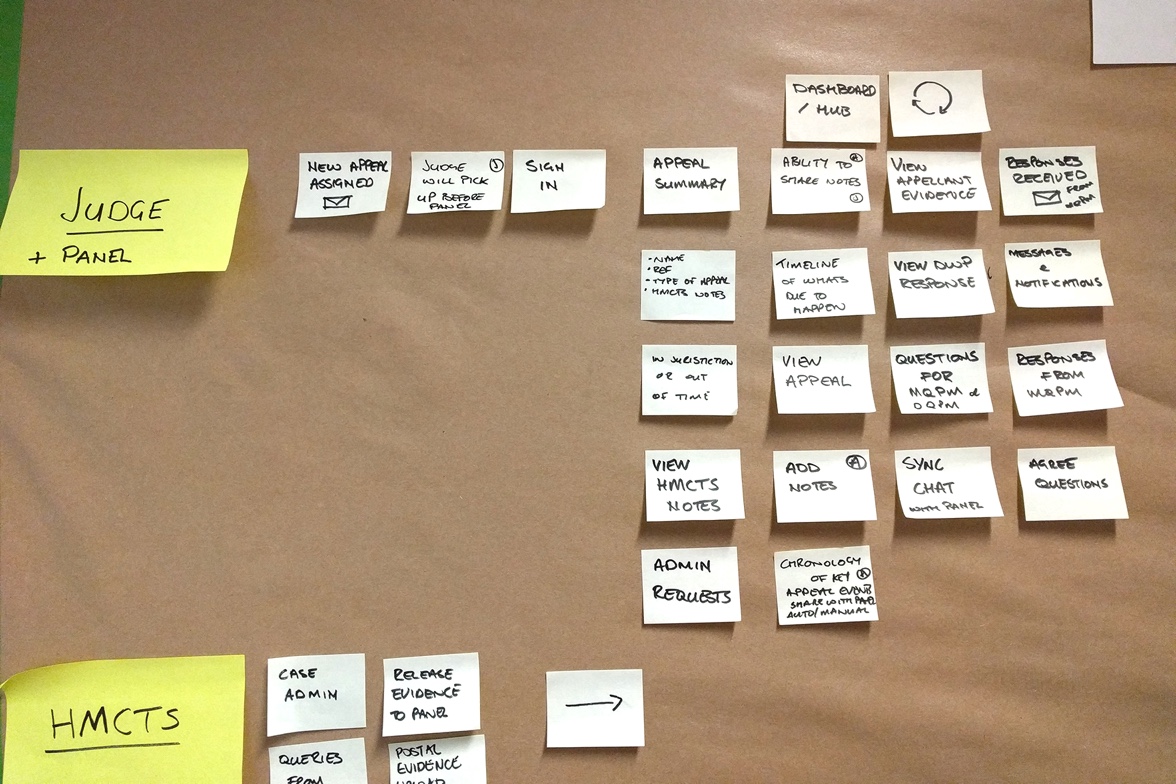 DASHBOARD
/ HUB
JUDGE
+ PANEL
NEW APPEAL
ASSIGNED
JUDGE J
WILL PICK
UP BEFORE
PANEL
SIGN
IN
APPEAL
SUMMARY
ABILITY TO A
SHARE NOTES
J
VIEW
APPELLANT
EVIDENCE
RESPONSES
RECEIVED
FROM
MQPM
• NAME
• REF
• TYPE OF APPEAL
• HMCTS NOTES
TIMELINE
OF WHATS
DUE TO
HAPPEN
VIEW DWP
RESPONSE
MESSAGES
&
NOTIFICATIONS
IN JURISTICTION
OR OUT
OF TIME
VIEW
APPEAL
QUESTIONS
FOR
MQPM &
DQPM
RESPONSES
FROM
MQPM
VIEW
HMCTS
NOTES
ADD A
NOTES
SYNC
CHAT
WITH PANEL
AGREE
QUESTIONS
ADMIN
REQUESTS
CHRONOLOGY
OF KEY A
APPEAL EVENTS
SHARE WITH PANEL
AUTO/MANUAL
HMCTS
CASE
ADMIN
RELEASE
EVIDENCE
TO PANEL
QUERIES
FROM
POSTAL
EVIDENCE
UPLOAD